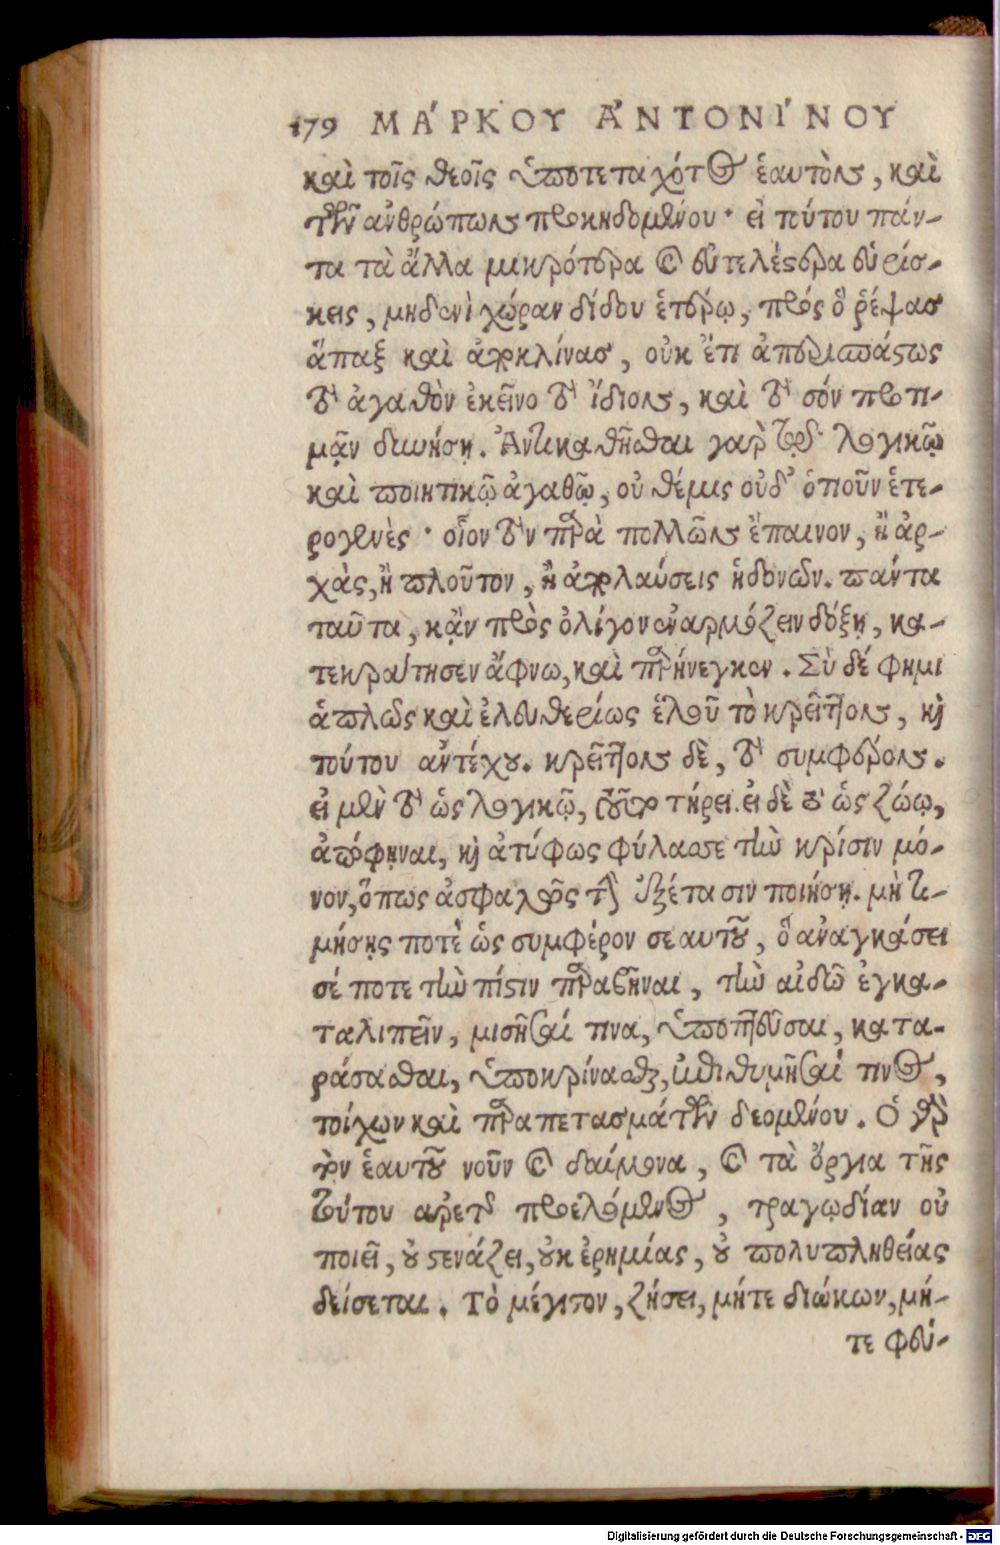 179 ΜΆΡΚΟΥ ἈΝΤΟΝΊΝΟΥ
καὶ τοῖς θεοῖς ὑποτεταχότος ἑαυτὸν, καὶ
τῶν ἀνθρώπων προκηδομένου· εἰ τούτου πάν-
τα τὰ ἄλλα μικρότερα καὶ εὐτελέστερα εὑρίσ-
κεις, μηδενὶ χώραν δίδου ἑτέρῳ, πρὸς ὃ ῥέψας
ἅπαξ καὶ ἀποκλίνας, οὐκ ἔτι ἀπερισπάστως
τὸ ἀγαθὸν ἐκεῖνο τὸ ἴδιον, καὶ τὸ σόν προτι-
μᾷν δυνήσῃ. Ἀντικαθῆσθαι γὰρ τῷ λογικῷ
καὶ ποιητικῷ ἀγαθῷ, οὐ θέμις οὐδ' ὁτιοῦν ἑτε-
ρογενὲς· οἷον τὸν παρὰ πολλῶν ἔπαινον, ἢ ἀρ-
χὰς, ἢ πλοῦτον, ἢ ἀπολαύσεις ἡδονῶν. πάντα
ταῦτα, κᾂν πρὸς ὀλίγον ἐναρμόζειν δόξῃ, κα-
τεκράτησεν ἄφνω, καὶ παρήνεγκεν. Σὺ δέ φημι
ἁπλῶς καὶ ἐλευθερίως ἑλοῦ τὸ κρεῖττον, καὶ
τούτου ἀντέχου. κρεῖττον δὲ, τὸ συμφέρον.
εἰ μὲν τὸ ὡς λογικῷ, τοῦτο τήρει. εἰ δὲ τὸ ὡς ζώῳ,
ἀπόφηναι, καὶ ἀτύφως φύλασσε τὴν κρίσιν μό-
νον, ὅπως ἀσφαλῶς τὴν ἐξέτασιν ποιήσῃ. μὴ τι-
μήσῃς ποτὲ ὡς συμφέρον σεαυτοῦ, ὃ ἀναγκάσει
σέ ποτε τὴν πίστιν παραβῆναι, τὴν αἰδῶ ἐγκα-
ταλιπεῖν, μισῆσαί τινα, ὑποπτεῦσαι, κατα-
ράσασθαι, ὑποκρίνασθαι, ἐπιθυμῆσαί τινος,
τοίχων καὶ παραπετασμάτων δεομένου. Ὁ γὰρ
τὸν ἑαυτοῦ νοῦν καὶ δαίμονα, καὶ τὰ ὄργια τῆς
τούτου ἀρετῆς προελόμενος, τραγῳδίαν οὐ
ποιεῖ, οὐ στενάζει, οὐκ ἐρημίας, οὐ πολυπληθείας
δείσεται. Τὸ μέγιστον, ζήσει, μήτε διώκων, μή-
τε φεύ-
Digitalisierung gefördert durch die Deutsche Forschungsgemeinschaft - DFG